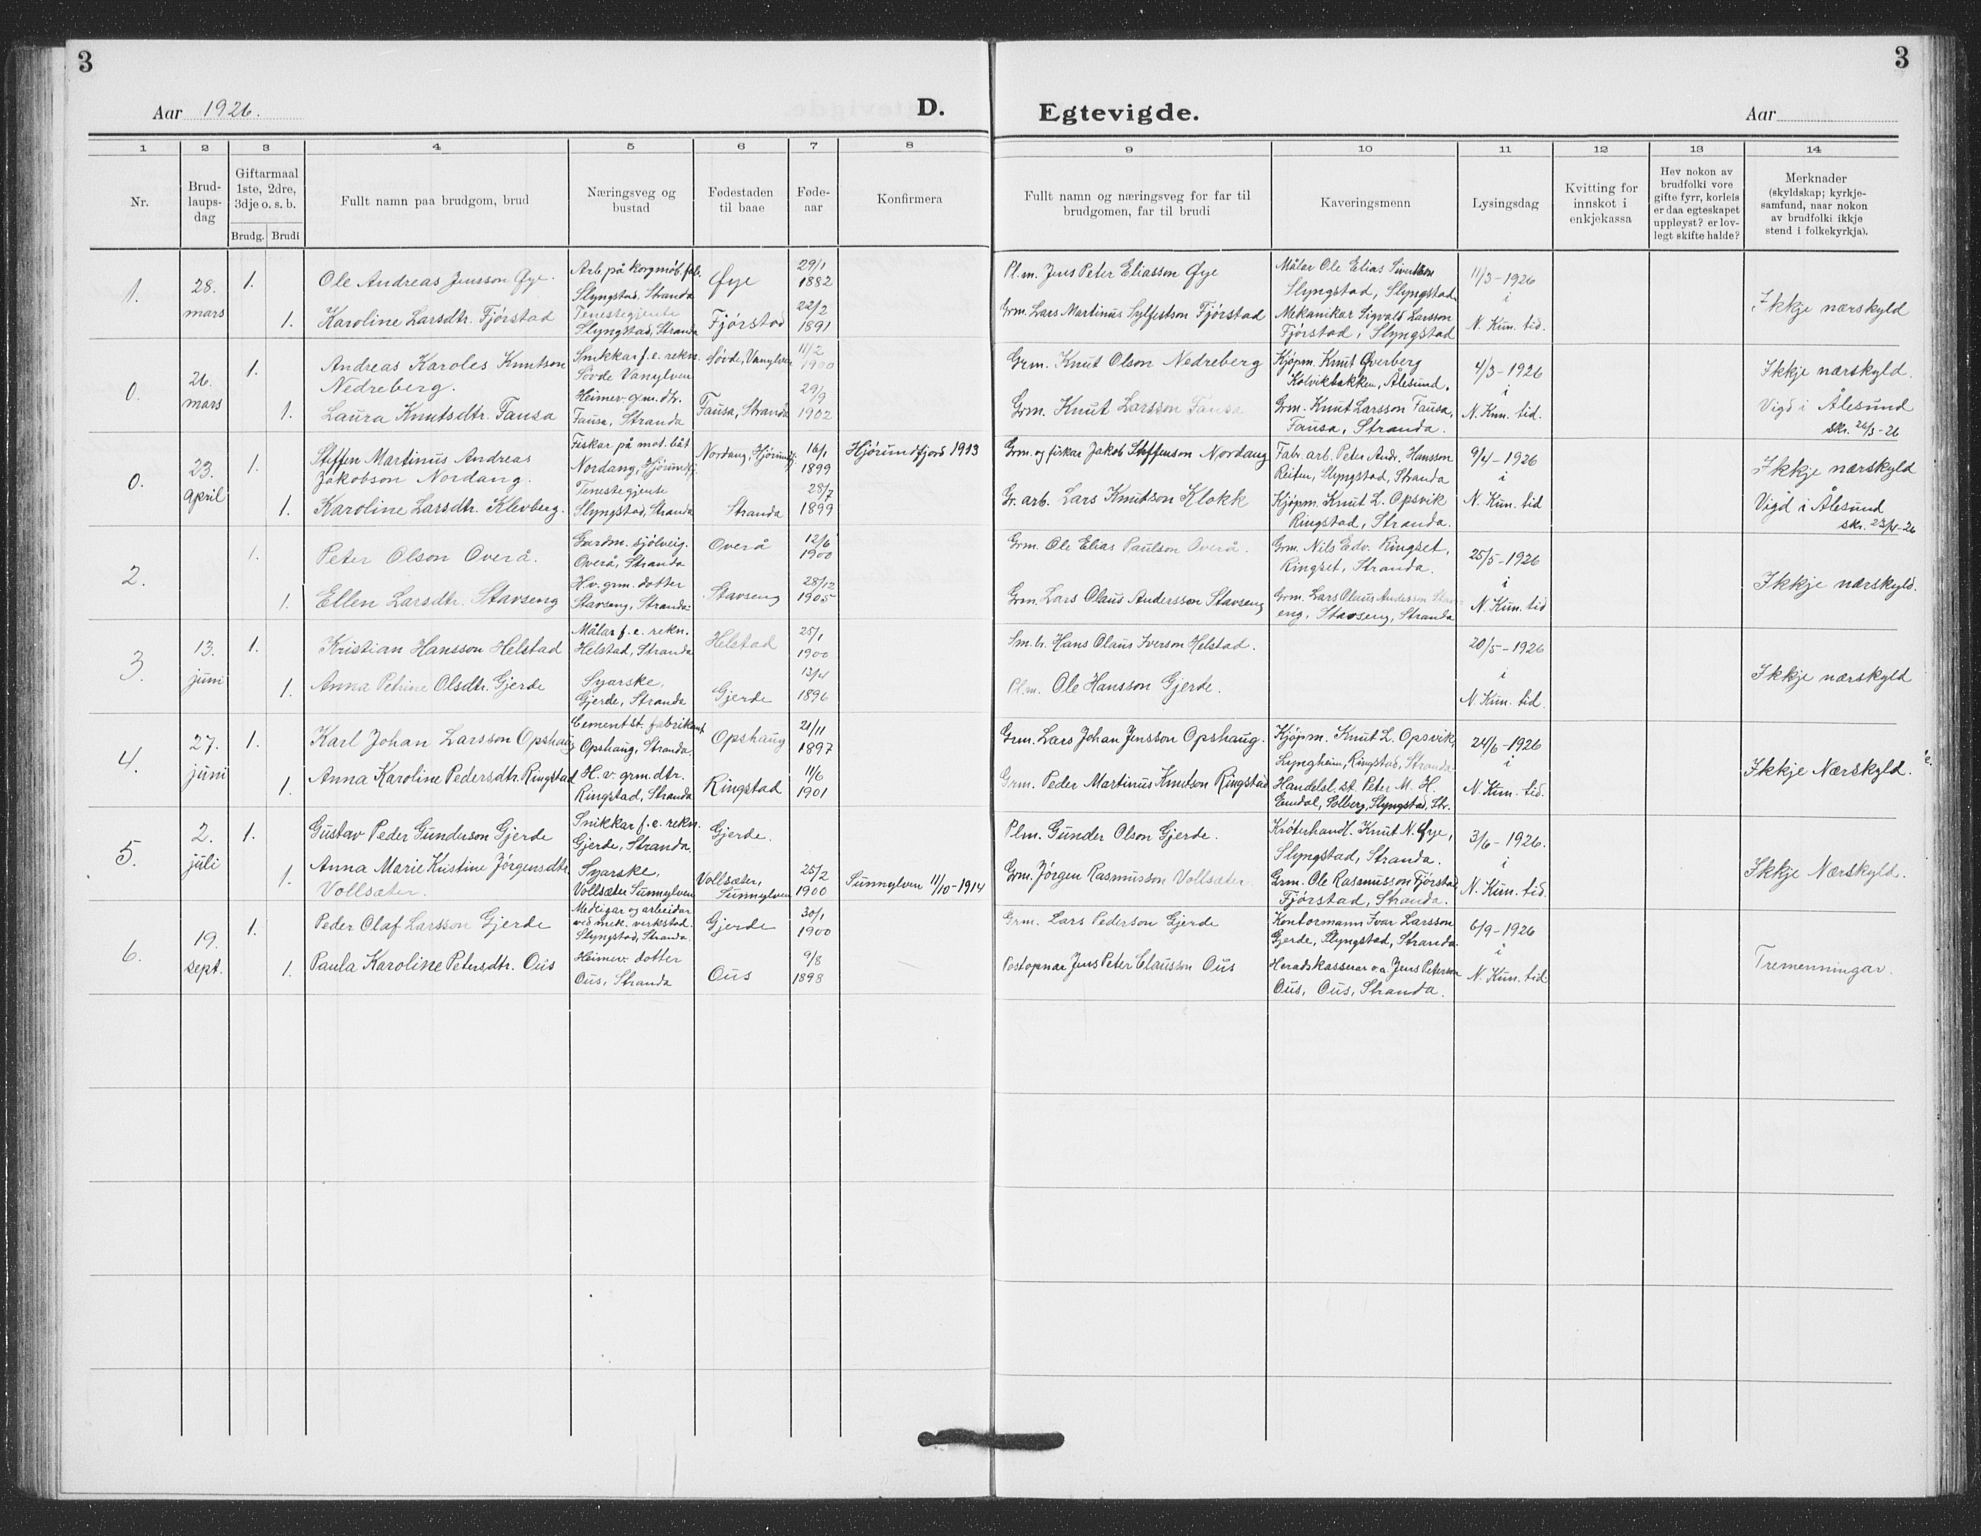 3
3
Aar 1926.
D. Egtevigde.
Aar
1 2 3 4 5 6 7 8 9 10 11 12 13 14
Nr.
Brud-
laups-
dag
Giftarmaal
1ste, 2dre,
3dje o. s. b.
Brudg. Brudi
Fullt namn paa brudgom, brud
Næringsveg og
bustad
Fødestaden
til baae
Føde-
aar
Konfirmera
Fullt namn og næringsveg for far til
brudgomen, far til brudi
Kaveringsmenn
Lysingsdag
Kvitting for
innskot i
enkjekassa
Hev nokon av
brudfolki vore
gifte fyrr, korleis
er daa egteskapet
uppløyst? er lov-
legt skifte halde?
Merknader
(skyldskap; kyrkje-
samfund, naar nokon
av brudfolki ikkje
stend i folkekyrkja).
1.
28.
mars
1.
Ole Andreas Jensson Øye.
Arb. på korgmøb.fab.
Slyngstad, Stranda
Øye
29/1
1882
Pl.m. Jens Peter Eliasson Øye
Målar Ole Elias Sivertson
Slyngstad, Slyngstad.
11/3-1926
i
N. Kun. tid.
Ikkje nærskyld
1.
Karoline Larsdtr. Fjørstad
Tenestegjente
Slyngstad, Stranda
Fjørstad
22/2
1891
Grm. Lars Martinus Sylfestson Fjørstad
Mekanikar Sigvald Larsson
Fjørstad, Slyngstad
0.
26.
mars
1.
Andreas Karoles Knutson
Nedreberg.
Snikkar f.e. rekn.
Søvde Vanylven
Søvde, Vanylven
11/2
1900
Grm. Knut Olson Nedreberg
Kjøpm. Knut Øverberg
Kolvikbakken, Ålesund.
4/3-1926
i
N. Kun. tid.
Ikkje nærskyld.
Vigd i Ålesund
skr. 26/3-26
1.
Laura Knutsdtr. Fausa
Heimev. grm. dtr.
Fausa, Stranda
Fausa, Stranda
29/9
1902
Grm. Knut Larsson Fausa
Grm. Knut Larsson Fausa,
Fausa, Stranda.
0.
23.
April
1.
Steffen Martinus Andreas
Jakobson Nordang.
Fiskar på mot. båt
Nordang, Hjørundfj.
Nordang, Hjørundfj.
16/1
1899
Hjørundfjord 1913
Grm. og fiskar Jakob Steffenson Nordang
Fabr. arb. Peter Andr. Hansson
Reiten, Slyngstad, Stranda
9/4-1926
i
N. Kun. tid
Ikkje nærskyld
Vigd i Ålesund
skr. 23/4-26
1.
Karoline Larsdtr. Klevberg.
Tenestegjente
Slyngstad, Stranda
Stranda
28/7
1899
Gr. arb. Lars Knutson Klokk
Kjøpm. Knut L. Opsvik
Ringstad, Stranda.
2.
1.
Peter Olson Overå.
Gardm. sjølveig.
Overå, Stranda
Overå
12/6
1900
Grm. Ole Elias Paulson Overå.
Grm. Nils Edv. Ringset,
Ringset, Stranda.
25/5-1926
i
N. Kun. tid
Ikkje nærskyld.
1.
Ellen Larsdtr. Stavseng
Hv. grm. dotter
Stavseng, Stranda.
Stavseng
28/12
1905
Grm. Lars Olaus Andersson Stavseng
Grm. Lars Olaus Andersson Stav-
eng, Stavseng, Stranda
3.
13.
juni
1.
Kristian Hansson Helstad
Målar f.e. rekn.
Helstad, Stranda
Helstad
25/1
1900
Sm.br. Hans Olaus Iverson Helstad.
20/5-1926
i
N. Kun. tid.
Ikkje nærskyld
1.
Anna Petrine Olsdtr. Gjerde
Syarske,
Gjerde, Stranda
Gjerde
13/4
1896
Pl.m. Ole Hansson Gjerde.
4.
27.
juni
1.
Karl Johan Larsson Opshaug
Cementst. fabrikant
Opshaug, Stranda.
Opshaug
21/11
1897
Grm. Lars Johan Jensson Opshaug.
Kjøpm. Knut L. Opsvik,
Lyngheim, Ringstad, Stranda.
24/6-1926
i
N. Kun. tid.
Ikkje Nærskyld.
1.
Anna Karoline Pedersdtr. Ringstad
H.v. grm. dtr.
Ringstad, Stranda
Ringstad
11/6
1901
Grm. Peder Martinus Knutson Ringstad
Handelsl. st. Peter M. H.
Emdal, Solberg, Slyngstad, Str.
5.
2.
juli
1.
Gustav Peder Gunderson Gjerde
Snikkar f.e. rekn.
Gjerde, Stranda.
Gjerde.
Plm. Gunder Olson Gjerde.
Krøterhandl. Knut N. Øye,
Slyngstad, Stranda.
3/6-1926.
i
N. Kun. tid.
Ikkje Nærskyld.
1.
Anna Marie Kristine Jørgensdtr.
Vollsæter.
Syarske,
Vollsæter Sunnylven
Vollsæter,
Sunnylven
25/2
1900
Sunnylven 11/10-1914
Grm. Jørgen Rasmusson Vollsæter
Grm. Ole Rasmusson Fjørstad
Fjørstad, Stranda.
6.
19.
sept.
1.
Peder Olaf Larsson Gjerde
Medeigar og arbeidar
ved mek. verkstad.
Slyngstad, Stranda.
Gjerde
30/1
1900
Grm. Lars Pederson Gjerde
Kontormann Ivar Larsson
Gjerde, Slyngstad, Stranda.
6/9-1926
i
N. Kun. tid.
Tremenningar.
1.
Paula Karoline Petersdtr. Ous
Heimev. dotter
Ous, Stranda
Ous
9/8
1898
Postopnar Jens Peter Clausson Ous
Heradskasserar o.a. Jens Peterson
Ous, Ous, Stranda.